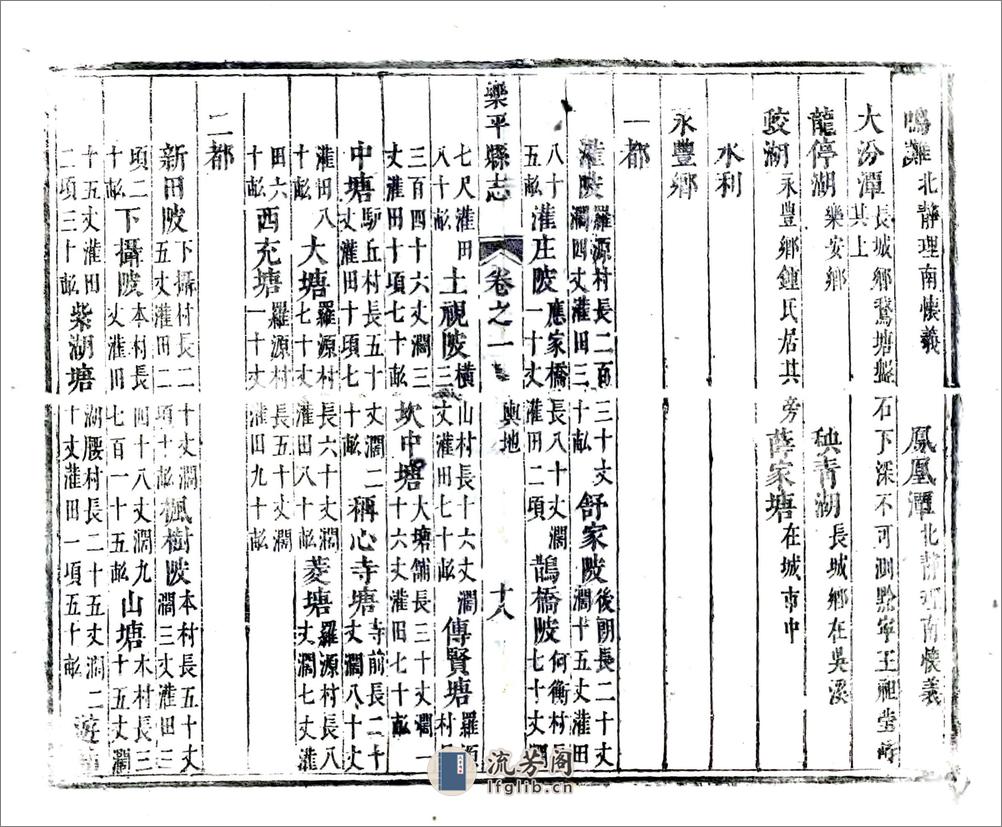 鳴灘北靜理南懷義 鳳凰潭北靜理南懷義
大汾潭長城鄉鶩塘盤石下深不可測黔寧王祖塋峙其上
龍停湖樂安鄉 秧青湖長城鄉在吳溪
蛟湖永豐鄉鍾氏居其旁 薛家塘在城市中
水利
永豐鄉
一都
灌陂羅源村長二百三十丈濶四丈灌田三十畝 舒家陂後朗長二十丈濶十五丈灌田
八十五畝 灌庄陂應家橋長八十丈濶一十丈灌田二項 鵲橋陂何衡村長七十丈濶
樂平縣志 卷之一 輿地 十八
七尺灌田八十畝 土視陂橫山村長十六丈濶三丈灌田七十畝 傳賢塘羅源村長
三百四十六丈濶三丈灌田十頃七十畝 坎中塘大塘舖長三十丈濶一十六丈灌田七十畝
中塘驴丘村長五十丈濶二丈灌田十項七十畝 稱心寺塘寺前長二十丈濶八十丈
灌田八十畝 大塘羅源村長六十丈濶七十丈灌田八十畝 菱塘羅源村長八丈濶七丈灌
田六十畝 西充塘羅源村長五十丈濶一十丈灌田九十畝
二都
新田陂下攝村長二十丈濶五丈灌田項十畝 楓樹陂本村長五十丈濶三丈灌田三
項二十畝 下攝陂本村長四十八丈濶九丈灌田七百一十五畝 山塘木村長三十五丈濶
十五丈灌田二項三十畝 柴湖塘湖腰村長二十五丈濶二十丈灌田一項五十畝
流芳阁
lfglib.cn